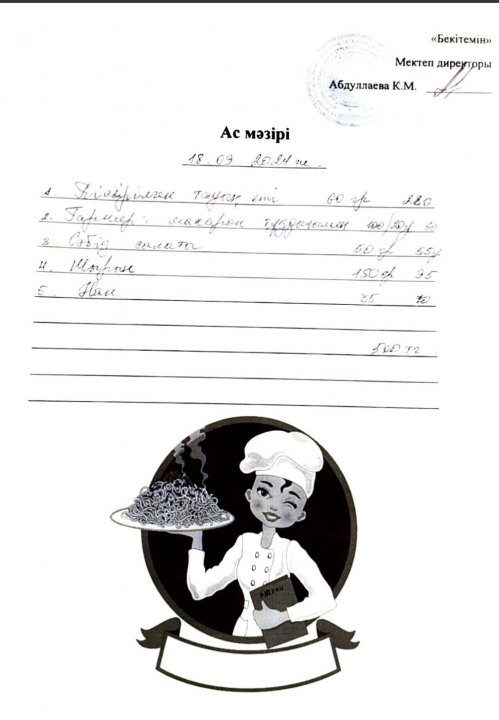 «Бекітемін»
Мектеп директоры
Абдуллаева К.М.
Ас мәзірі
18.09.2024 ж.
1. Пісірілген тауық еті 60 гр 280
2. Гарнир: макарон тұздықпен 100/20гр 60
3. Сәбіз салаты 50 гр 55
4. Айран 150гр 95
5. Нан 35 10
500 тг.